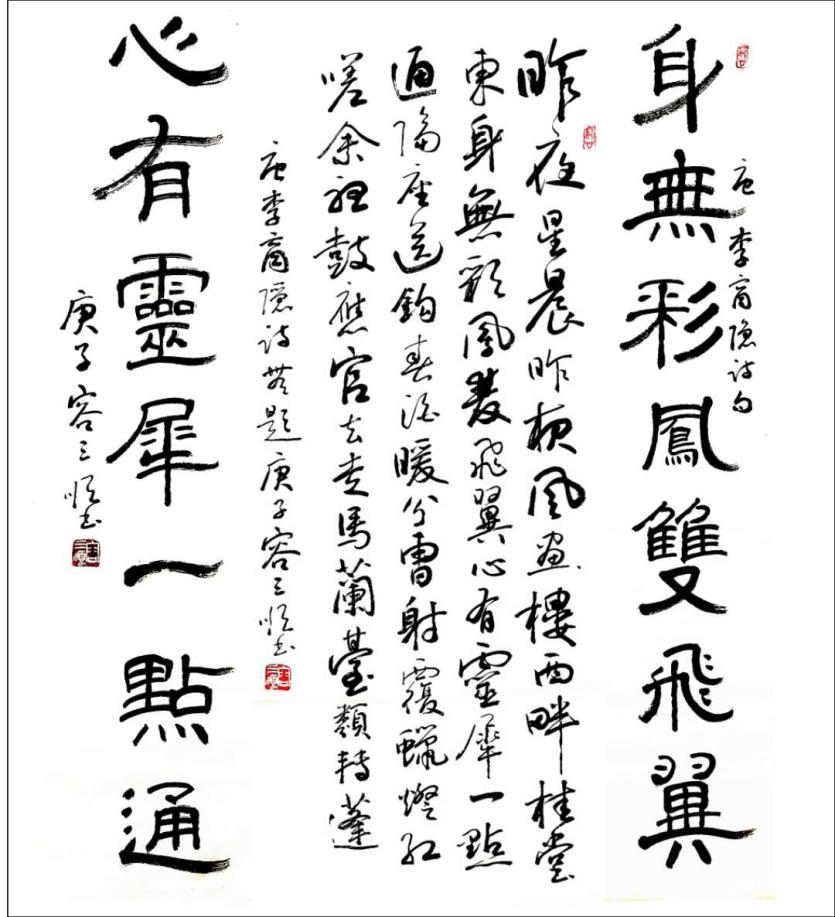 身無彩鳳雙飛翼
唐李商隐诗句
昨夜星晨昨夜風画樓西畔桂堂
東身無彩鳳雙飛翼心有靈犀一點
通隔座送鈎春酒暖分曹射覆蠟燈红
嗟余聽鼓應官去走馬蘭臺類轉蓬
唐李商隱诗無題庚子容三順书
心有靈犀一點通
庚子容三順书